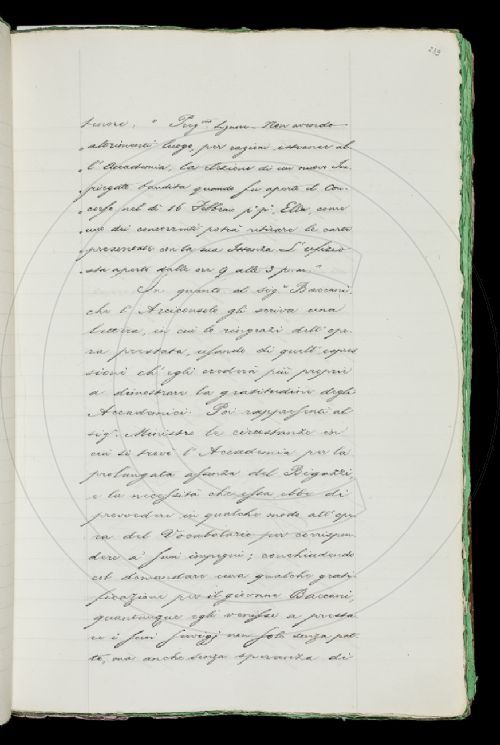 239
tenore, " Preg.mo Signore. Non avendo
" altrimenti luogo, per ragioni estranee al
" l'Accademia, la elezione di un nuovo Im
" piegato bandita quando fu aperto il Con
" corso nel dì 16 Febbraio p.º p.º, Ella, come
" uno dei concorrenti potrà ritirare le carte
" presentate con la sua Istanza. L'ufizio
" sta aperto dalle ore 9 alle 3 p. m. "
In quanto al sig.r Baccani,
che l'Arciconsolo gli scriva una
lettera, in cui lo ringrazi dell'ope
ra prestata, usando di quell'espres
sioni ch'egli crederà più proprie
a dimostrare la gratitudine degli
Accademici. Poi rappresenti al
sig.r Ministro le circostanze in
cui si trovò l'Accademia per la
prolungata assenza del Bigazzi,
e la necessità che essa ebbe di
provvedere in qualche modo all'ope
ra del Vocabolario per corrispon
dere a' suoi impegni; conchiudendo
col domandare una qualche grati
ficazione per il giovane Baccani
quantunque egli venisse a presta
re i suoi servigj non solo senza pat
to, ma anche senza speranza di